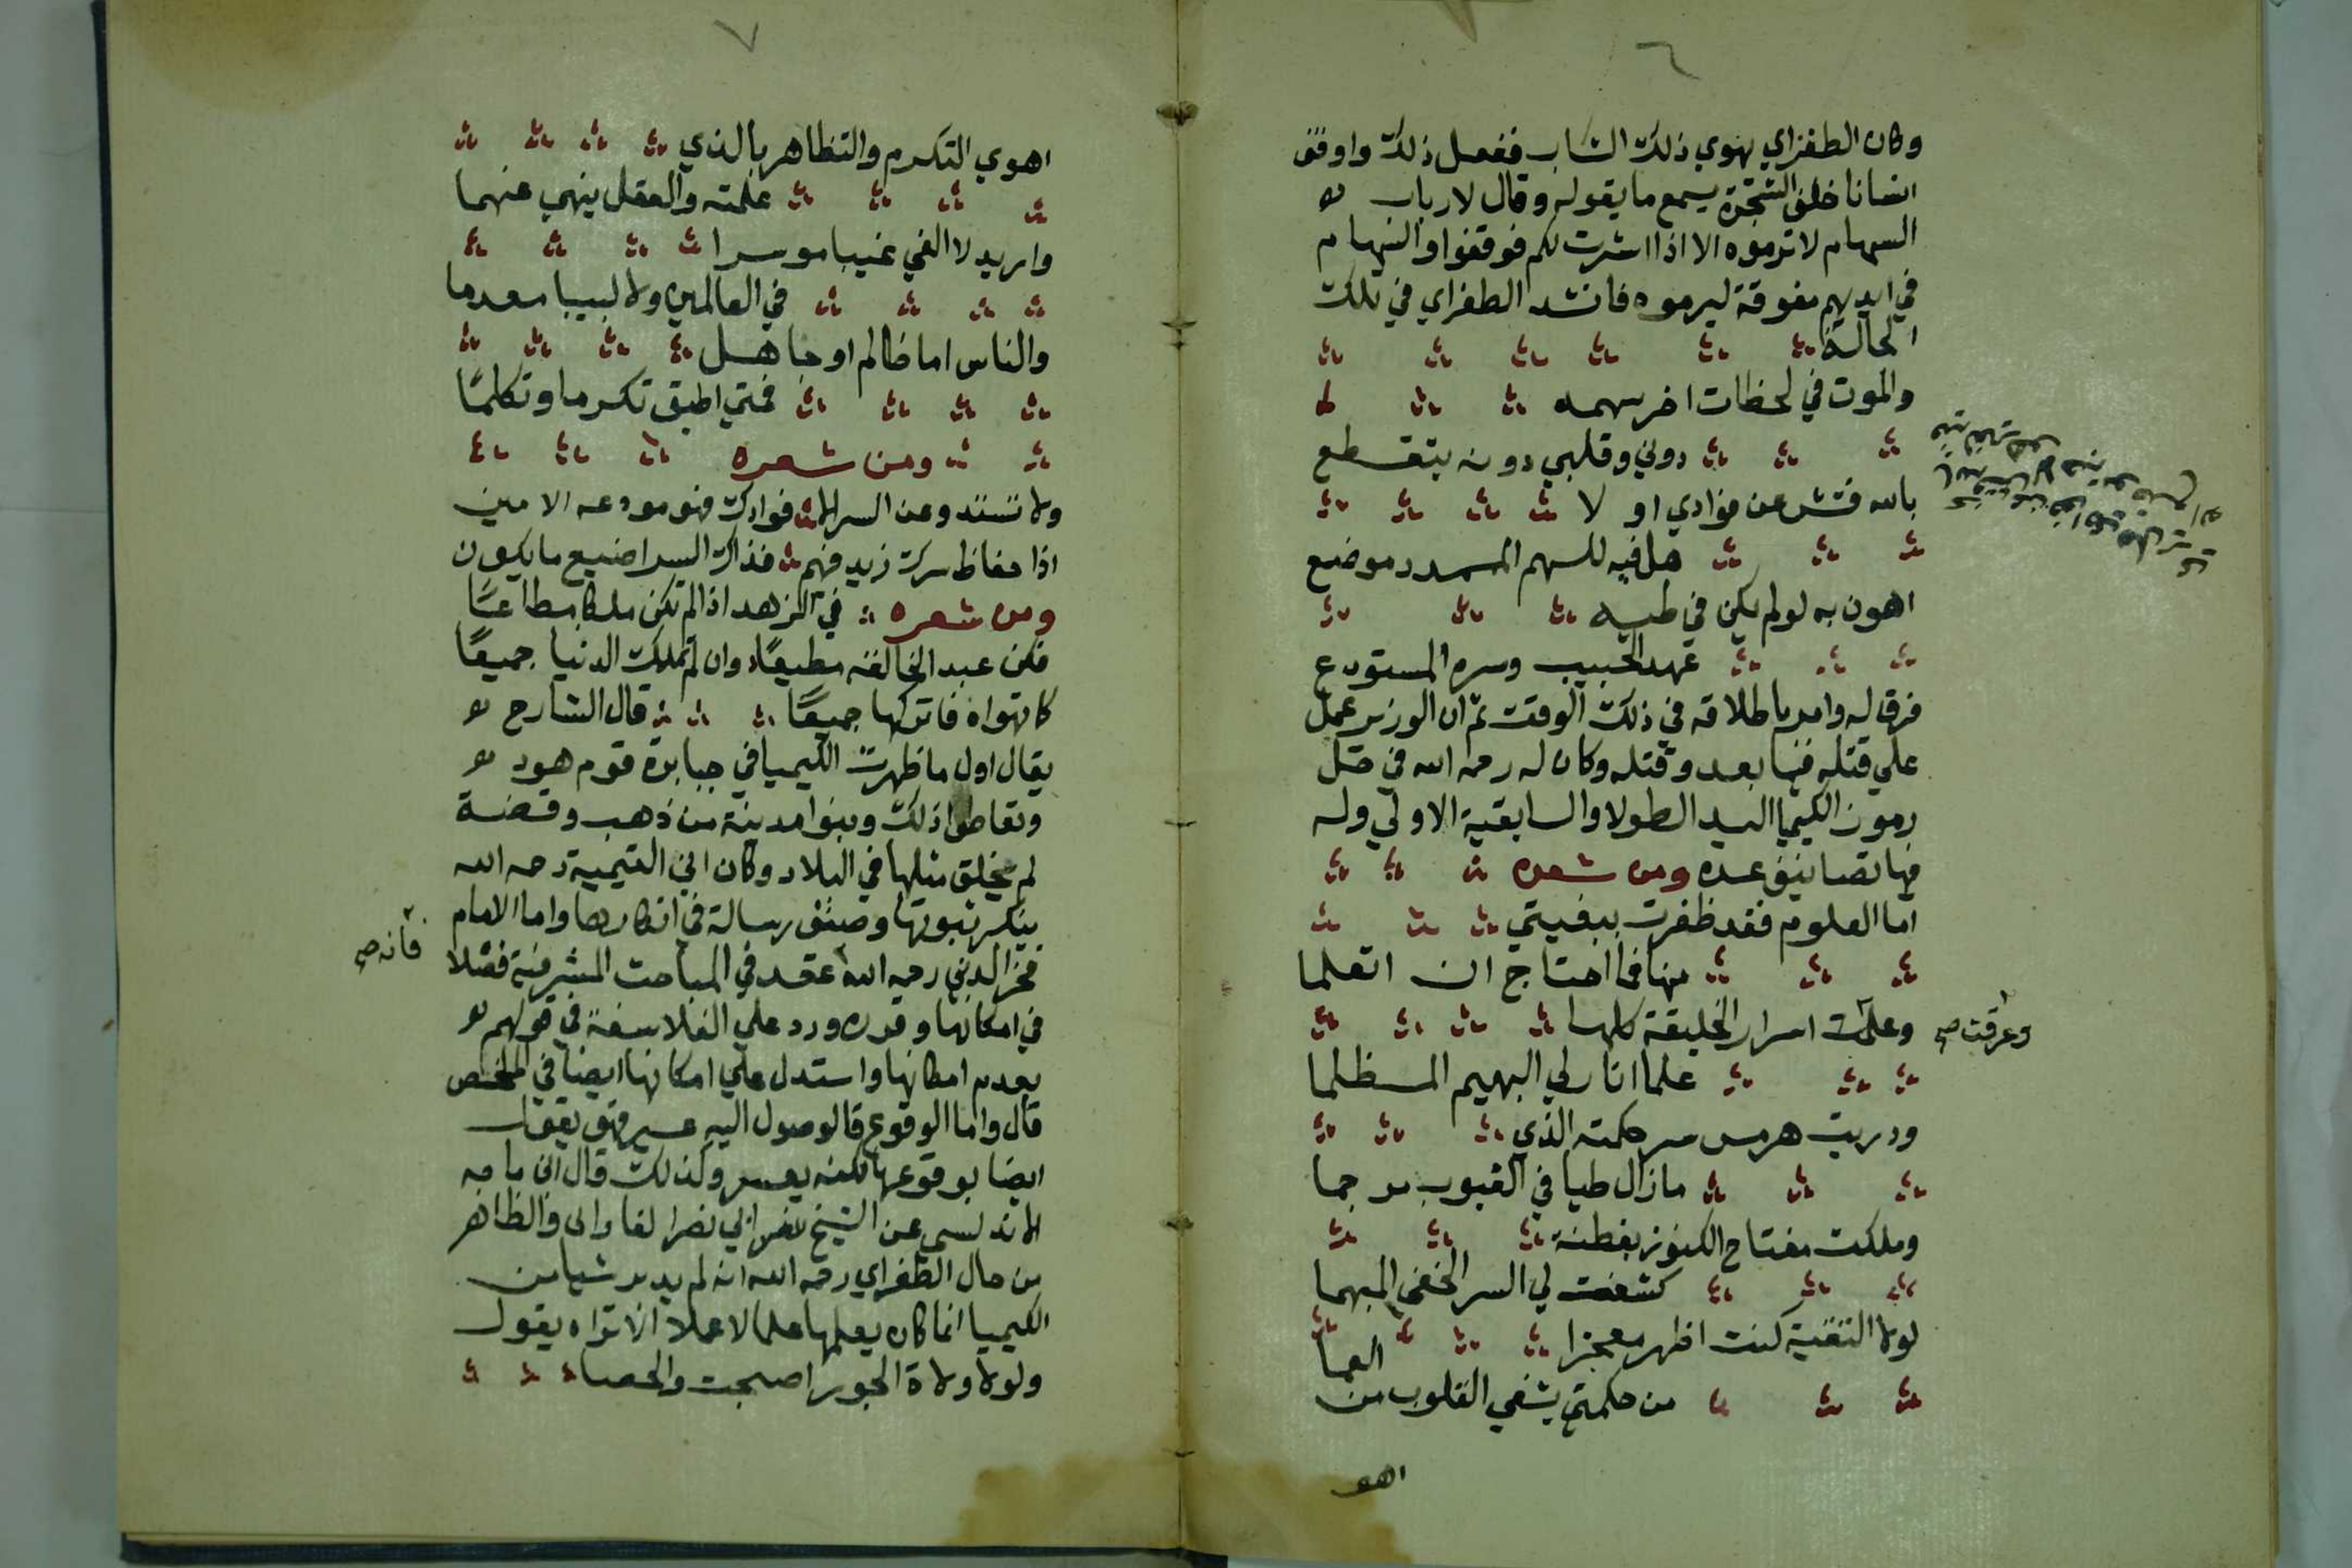 ٦
وكان الطغراي يهوي ذلك الشاب ففعل ذلك واوقف
انسانا خلف الشجرة يسمع ما يقوله وقال لارباب
السهام لا ترموه الا اذا اشرت لكم فوقفوا والسهام
في ايديهم مفوقة ليرموه فانشد الطغراي في تلك
الحالة
والموت في لحظات اخر سهمه
دوني وقلبي دونه يتقطع
بالله فتش عن فؤادي او لا
هل فيه للسهم المسدد موضع
اهون به لو لم يكن في طيه
عهد الحبيب وسره المستودع
فرق له وامر باطلاقه في ذلك الوقت ثم ان الوزير عمل
علي قتله فيما بعد وقتله وكان له رحمه الله في حل
رموز الكيميا اليد الطولا والسابقية الاولي وله
فيها تصانيف عده ومن شعره
اما العلوم فقد ظفرت ببغيتي
منها فما احتاج ان اتعلما
وعلمت اسرار الخليقة كلها
وعرفت صح
علما انار لي البهيم المظلما
ودريت هرمس سر حكمته الذي
ما زال طيا في الغيوب مرجما
وملكت مفتاح الكنوز بفطنة
كشفت لي السر الخفي المبهما
لولا التقية كنت اظهر معجزا
من حكمتي يشفي القلوب من العما
اهو
٧
اهوي التكرم والتظاهر بالذي
علمته والعقل ينهي عنهما
واريد لا الفي غبيا موسرا
في العالمين ولا لبيبا معدما
والناس اما ظالم او جاهل
فمتي اطيق تكرما وتكلمًا
ومن شعره
ولا تستودعن السر الا فوادك فهو موضعه الامين
اذا حفاظ سرك زيد فهم فذاك السر اضيع ما يكون
ومن شعره في الزهد اذا لم تكن ملكا مطاعًا
فكن عبد الخالقه مطيعًا وان لم تملك الدنيا جميعًا
كما تهواه فاتركها جميعًا قال الشارح
يقال اول ما ظهرت الكيميا في جبابرة قوم هود
وتعاطوا ذلك وبنوا مدينة من ذهب وفضة
لم يخلق مثلها في البلاد وكان ابن التيمية رحمه الله
ينكر ثبوتها وصنف رسالة في انكارها واما الامام
فخر الدين رحمه الله عقد في المباحث المشرقية فصلا
فانه صح
في امكانها وقرره ورد علي الفلاسفة في قولهم
بعدم امكانها واستدل علي امكانها ايضا في الملخص
قال واما الوقوع فالوصول اليه عسير فهو يقول
ايضا بوقوعها لكنه يعسر وكذلك قال ابن ماجه
الاندلسي عن الشيخ نضر ابي نصر الفارابي والظاهر
من حال الطغراي رحمه الله انه لم يدبر شيا من
الكيميا انما كان يعلمها علما لا عملا الا تراه يقول
ولولا ولاة الجور اصبحت والحصا